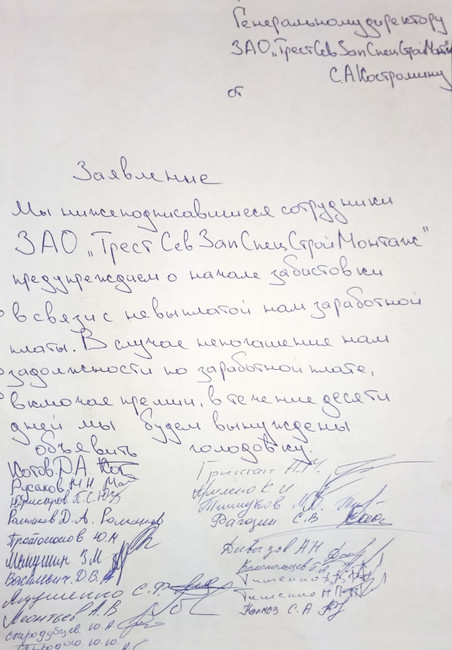 Генеральному директору
ЗАО „ТрестСевЗапСпецСтройМонтаж"
С.А Костромину
от
Заявление
Мы нижеподписавшиеся сотрудники
ЗАО „ТрестСевЗапСпецСтройМонтаж"
предупреждаем о начале забастовки
в связи с невыплатой нам заработной
платы. В случае непогашение нам
задолжности по заработной плате,
включая премии, в течение десяти
дней мы будем вынуждены
объявить голодовку.
Котов Д А
Русаков М Н
Романов Д. А.
Протопопов Ю.Н
З.М
Васильевич Д.В.
Якушенко С.Ф
Леонтьев А.В
Стародубцев Ю.А
К И
Тимщуков
Рагозин С. В
Давыдов АН
Тименно
Тименно Н.П
С.А